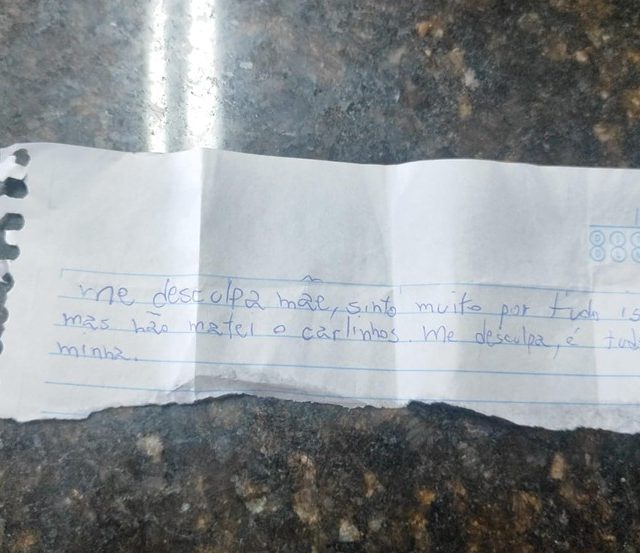 me desculpa mãe, sinto muito por tudo is
mas não matei o carlinhos. Me desculpa, é tud
minha.